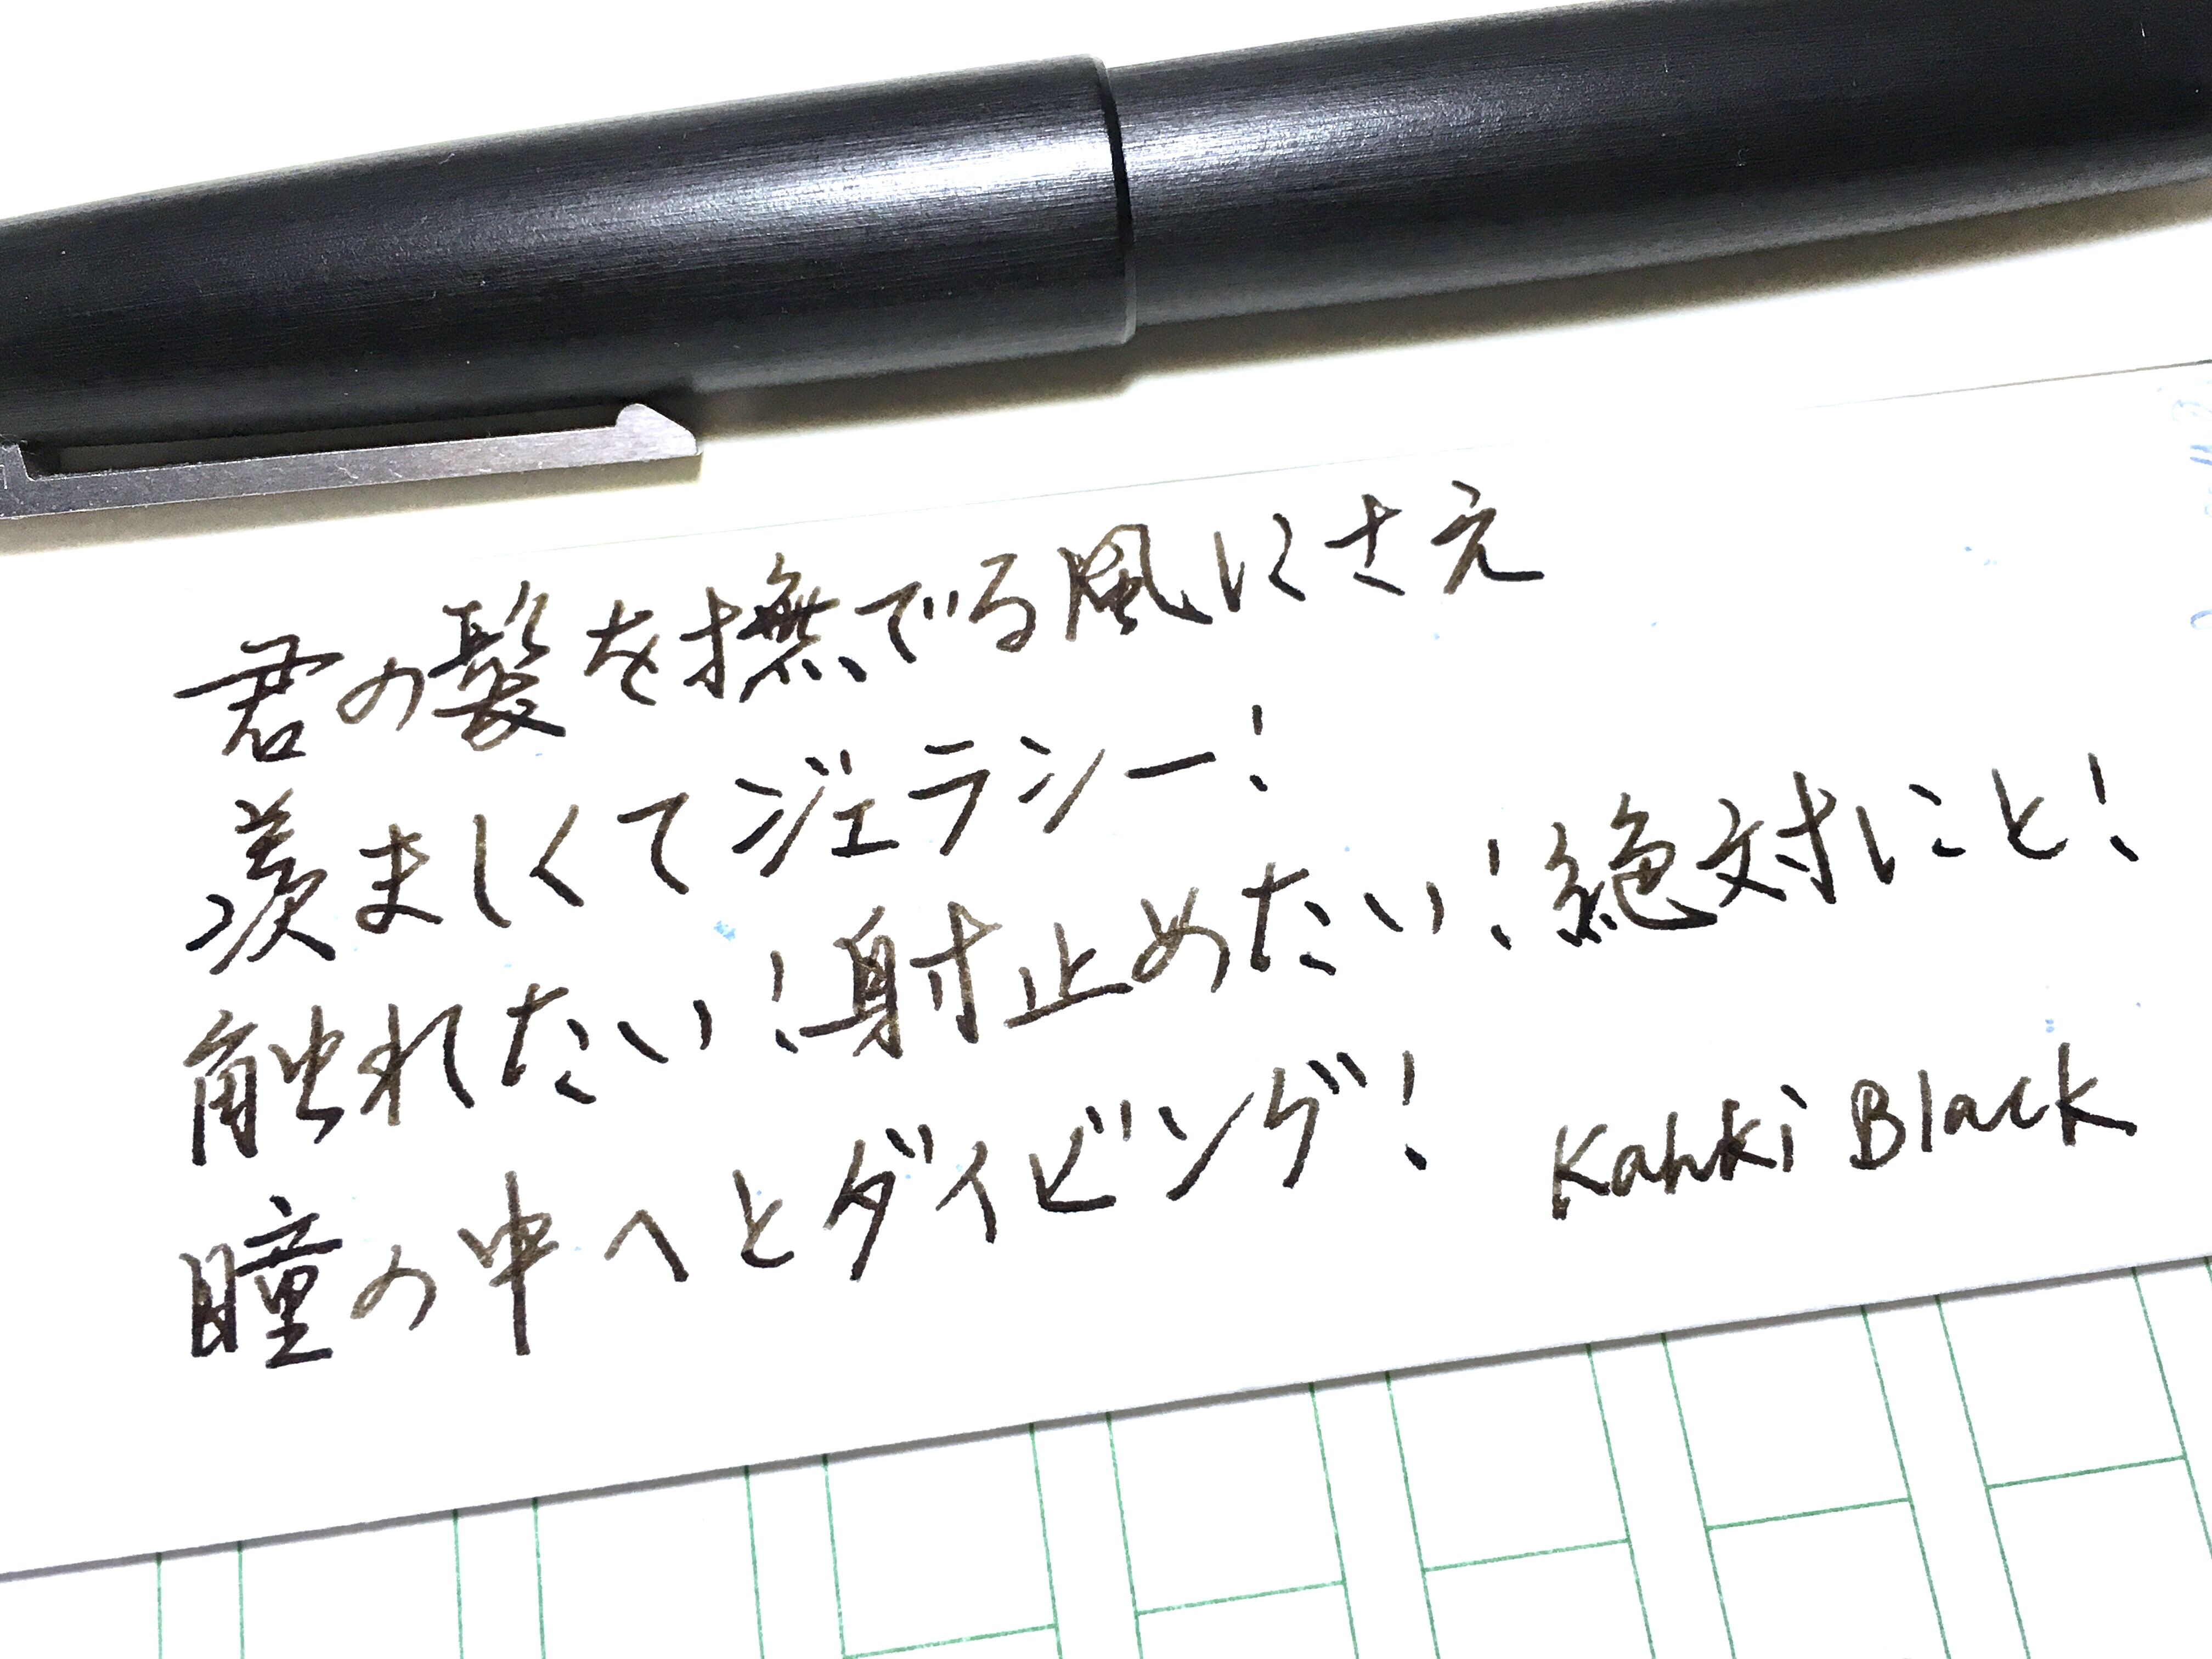 君の髪を撫でる風にさえ
羨ましくてジェラシー!
触れたい!射止めたい!絶対にと!
瞳の中へとダイビング!
Kahki Black